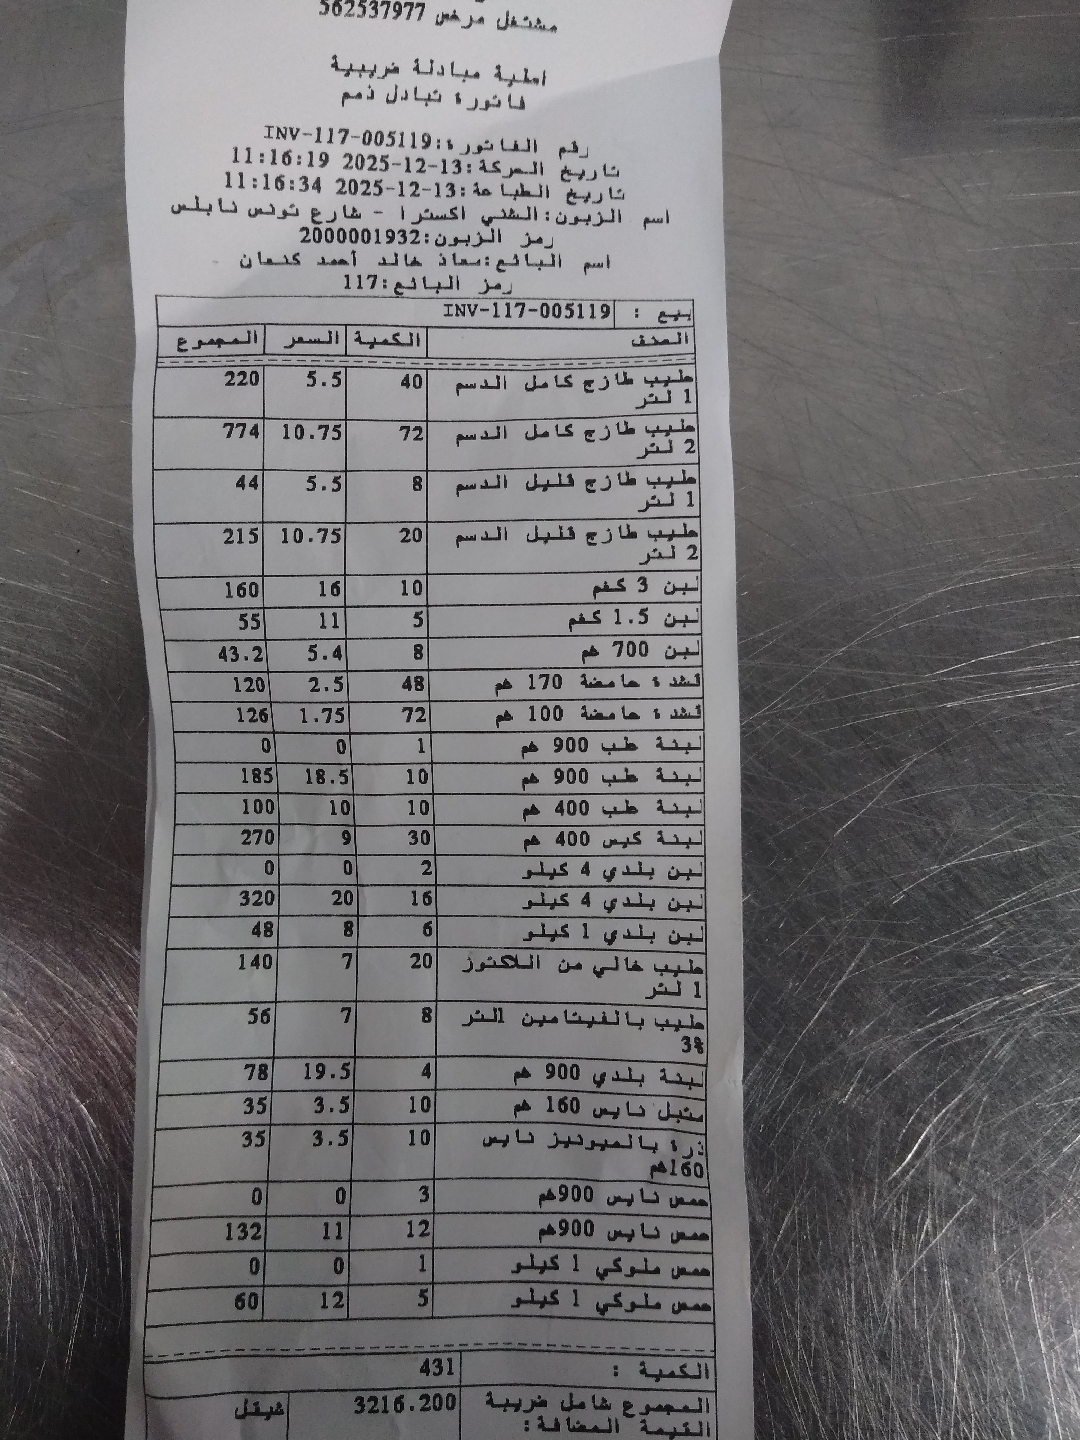 مشتغل مرخص 562537977
اصلية مبادلة ضريبية
فاتورة تبادل ذمم
رقم الفاتورة:INV-117-005119
تاريخ الحركة:2025-12-13 11:16:19
تاريخ الطباعة:2025-12-13 11:16:34
اسم الزبون:الشني اكسترا - شارع تونس نابلس
رمز الزبون:2000001932
اسم البائع:معاذ خالد أحمد كنعان
رمز البائع:117
بيع : INV-117-005119
الصنف الكمية السعر المجموع
حليب طازج كامل الدسم 40 5.5 220
1 لتر
حليب طازج كامل الدسم 72 10.75 774
2 لتر
حليب طازج قليل الدسم 8 5.5 44
1 لتر
حليب طازج قليل الدسم 20 10.75 215
2 لتر
لبن 3 كغم 10 16 160
لبن 1.5 كغم 5 11 55
لبن 700 غم 8 5.4 43.2
قشدة حامضة 170 غم 48 2.5 120
قشدة حامضة 100 غم 72 1.75 126
لبنة طب 900 غم 1 0 0
لبنة طب 900 غم 10 18.5 185
لبنة طب 400 غم 10 10 100
لبنة كيس 400 غم 30 9 270
لبن بلدي 4 كيلو 2 0 0
لبن بلدي 4 كيلو 16 20 320
لبن بلدي 1 كيلو 6 8 48
حليب خالي من اللاكتوز 20 7 140
1 لتر
حليب بالفيتامين 1لتر 8 7 56
3%
لبنة بلدي 900 غم 4 19.5 78
متبل نايس 160 غم 10 3.5 35
ذرة بالميونيز نايس 10 3.5 35
160غم
حمص نايس 900غم 3 0 0
حمص نايس 900غم 12 11 132
حمص ملوكي 1 كيلو 1 0 0
حمص ملوكي 1 كيلو 5 12 60
الكمية : 431
المجموع شامل ضريبة 3216.200 شيقل
القيمة المضافة: